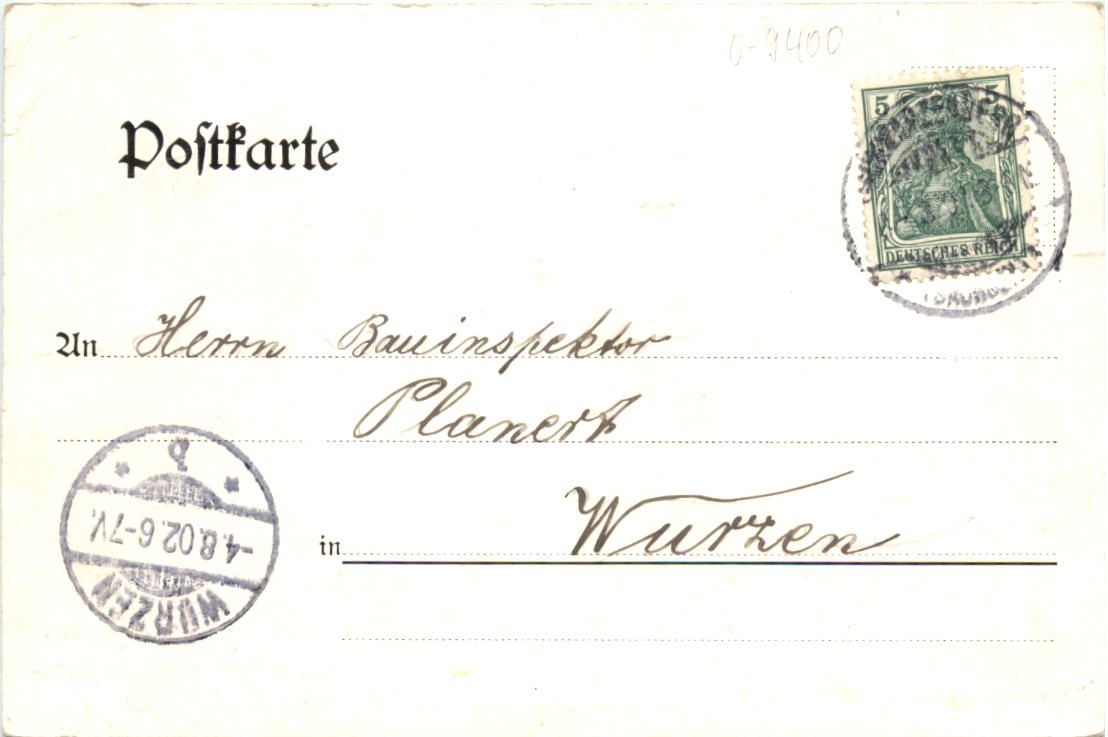 0-9400
Postkarte
5 5
DEUTSCHES REICH
An Herrn Bauinspektor
Planert
in Wurzen
b
-4.8.02.6-7V.
WURZEN